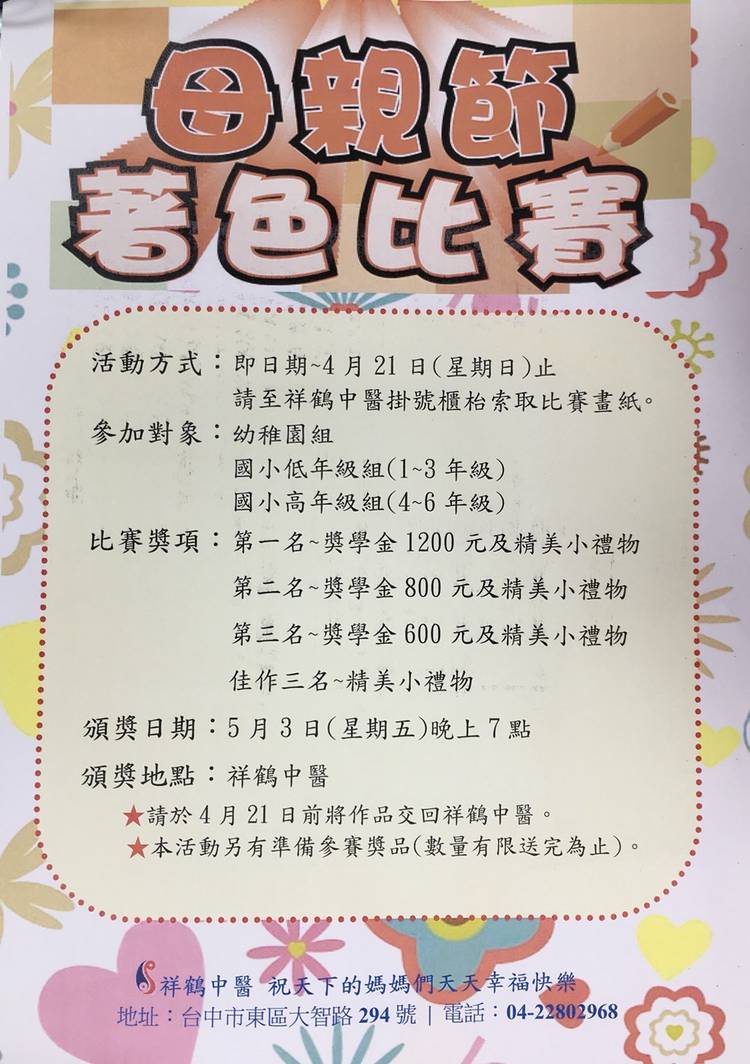 母親節
著色比賽
活動方式：即日期~4月21日(星期日)止
請至祥鶴中醫掛號櫃枱索取比賽畫紙。
參加對象：幼稚園組
國小低年級組(1~3年級)
國小高年級組(4~6年級)
比賽獎項：第一名~獎學金1200元及精美小禮物
第二名~獎學金800元及精美小禮物
第三名~獎學金600元及精美小禮物
佳作三名~精美小禮物
頒獎日期：5月3日(星期五)晚上7點
頒獎地點：祥鶴中醫
★請於4月21日前將作品交回祥鶴中醫。
★本活動另有準備參賽獎品(數量有限送完為止)。
祥鶴中醫 祝天下的媽媽們天天幸福快樂
地址：台中市東區大智路294號 | 電話：04-22802968